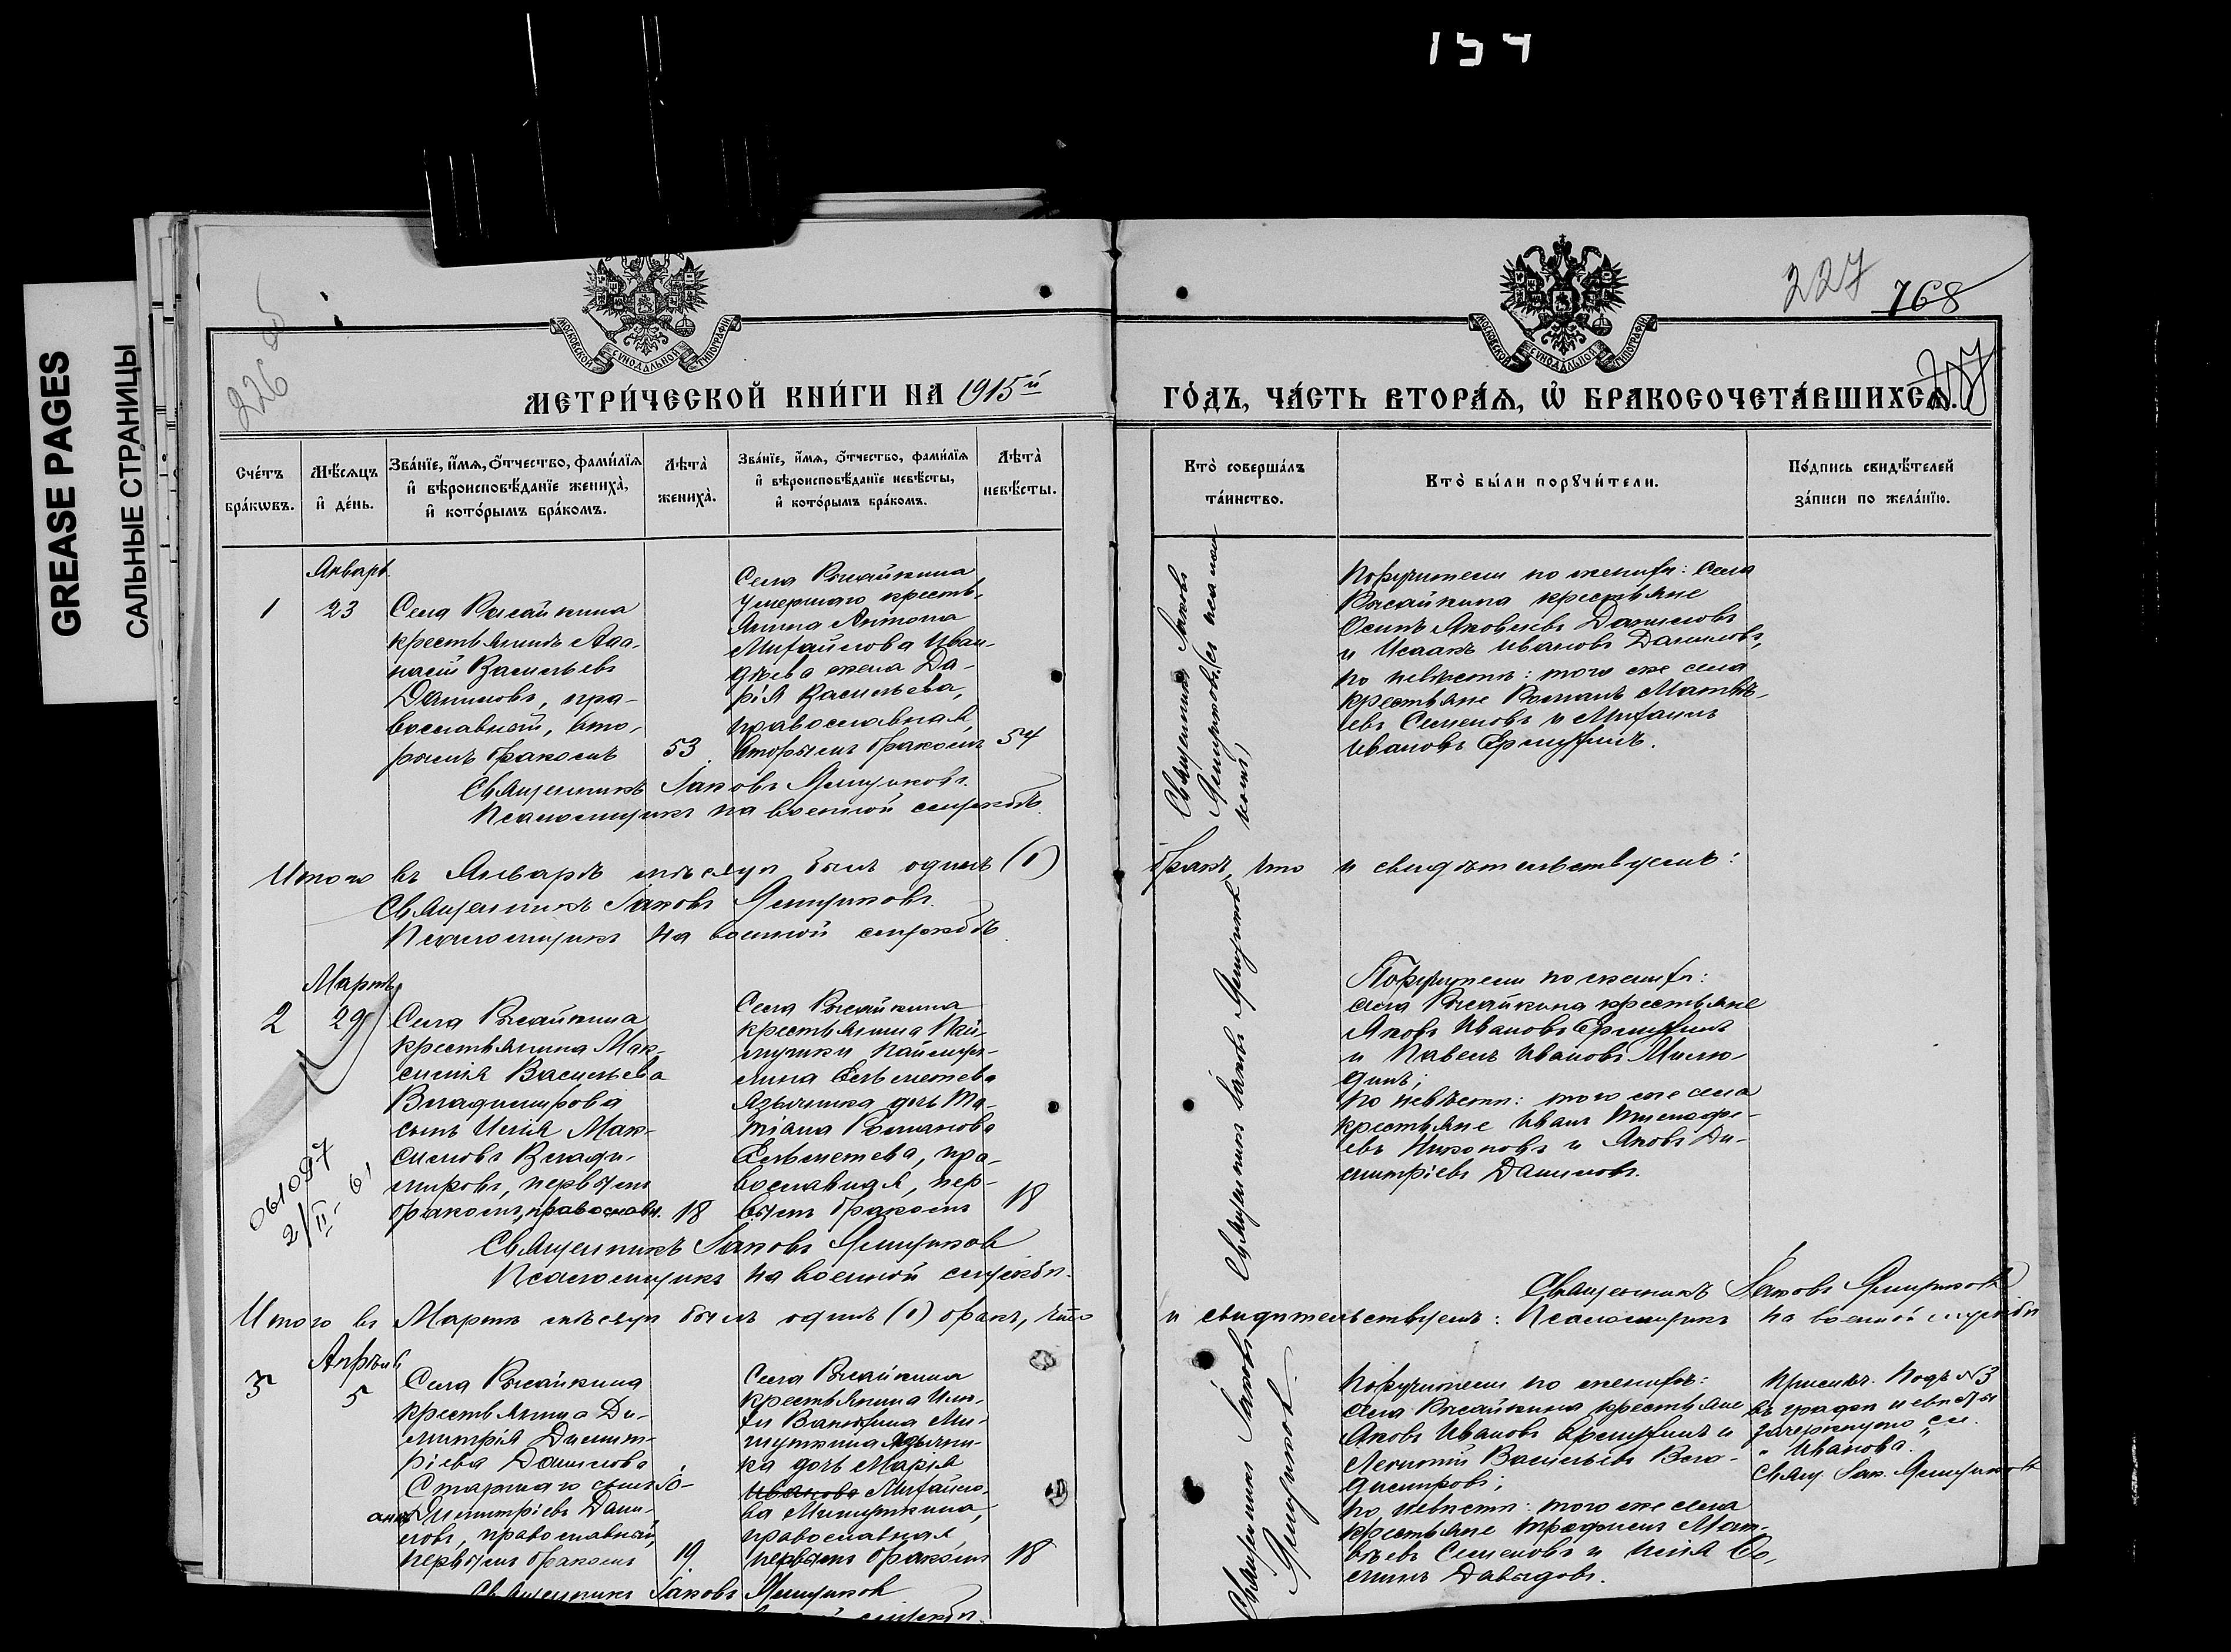 154
GREASE PAGES
САЛЬНЫЕ СТРАНИЦЫ
226
227
768
МОСКОВСКОЙ СѴНОДАЛЬНОЙ ТИПОГРАФІИ
МОСКОВСКОЙ СѴНОДАЛЬНОЙ ТИПОГРАФІИ
МЕТРИ́ЧЕСКОЙ КНИ́ГИ НА 1915й
ГО́ДЪ, ЧА́СТЬ ВТОРА́Ѧ, Ѡ҆ БРАКОСОЧЕТА́ВШИХСѦ.
Сче́тъ
бра́кѡвъ.
Мѣ́сѧцъ
и҆ де́нь.
Зва́нїе, и҆́мѧ, ѻ҆́тчество, фами́лїѧ
и҆ вѣроисповѣ́данїе жениха̀,
и҆ кото́рымъ бра́комъ.
Лѣта̀
жениха̀.
Зва́нїе, и҆́мѧ, ѻ҆́тчество, фами́лїѧ
и҆ вѣроисповѣ́данїе невѣ́сты,
и҆ кото́рымъ бра́комъ.
Лѣта̀
невѣ́сты.
Кто̀ соверша́лъ
та́инство.
Кто̀ бы́ли порꙋчи́тели.
По́дпись свидѣ́телей
за́писи по жела́нїю.
Январь
1
23
Села Рысайкина
крестьянинъ Аѳа-
насій Васильевъ
Даниловъ, пра-
вославный, вто-
рымъ бракомъ
53
Села Рысайкина
умершаго кресть-
янина Антона
Михайлова Иван-
жена Да-
рія Васильева,
православная,
вторымъ бракомъ
54
Священникъ Іаковъ
Поручители по женихѣ: села
Рысайкина крестьяне
Осипъ Яковлевъ Даниловъ
и Исаакъ Ивановъ Даниловъ,
по невѣстѣ: того же села
крестьяне Романъ Матвѣ-
евъ Семеновъ и Михаилъ
Ивановъ
Священникъ Іаковъ Ямщиковъ.
Псаломщикъ на военной службѣ.
Итого въ Январѣ мѣсяцѣ былъ одинъ (1)
бракъ, что и свидѣтельствуемъ:
Священникъ Іаковъ Ямщиковъ.
Псаломщикъ на военной службѣ.
Мартъ
2
29
Села Рысайкина
крестьянина Мак-
сима Васильева
Владимірова
сынъ Илія Мак-
симовъ Влади-
міровъ, первымъ
бракомъ, православн.
18
Села Рысайкина
крестьянина
язычника дочь Та-
тіана Романова
пра-
вославная, пер-
вымъ бракомъ
18
Священникъ Іаковъ Ямщиковъ
Поручители по женихѣ:
села Рысайкина крестьяне
Яковъ Ивановъ
и Павелъ Ивановъ Милю-
динъ;
по невѣстѣ: того же села
крестьяне Иванъ
евъ Никоновъ и Яковъ Ди-
митріевъ Даниловъ.
2/II 61
Священникъ Іаковъ Ямщиковъ
Псаломщикъ на военной службѣ.
Священникъ Іаковъ Ямщиковъ
Итого въ Мартѣ мѣсяцѣ былъ одинъ (1) бракъ, что
и свидѣтельствуемъ: Псаломщикъ на военной службѣ
Апрѣль
3
5
Села Рысайкина
крестьянина Ди-
митрія Димит-
ріева Данилова
Димитріевъ Дани-
ловъ, православный,
первымъ бракомъ
19
Села Рысайкина
крестьянина
язычни-
ка дочь Марія
Иванова Михайло-
ва Мишуткина,
православная
первымъ бракомъ
18
Священникъ Іаковъ
Ямщиковъ.
Поручители по женихѣ:
села Рысайкина крестьяне
Яковъ Ивановъ и
Васильевъ Вла-
диміровъ;
по невѣстѣ: того же села
крестьяне Трофимъ Мат-
вѣевъ Семеновъ и Илія
Давыдовъ.
Примѣч. Подъ №3
въ графѣ невѣсты
зачеркнуто сл.
„Иванова".
Свящ. Іак. Ямщиковъ
Священникъ Іаковъ Ямщиковъ
службѣ.